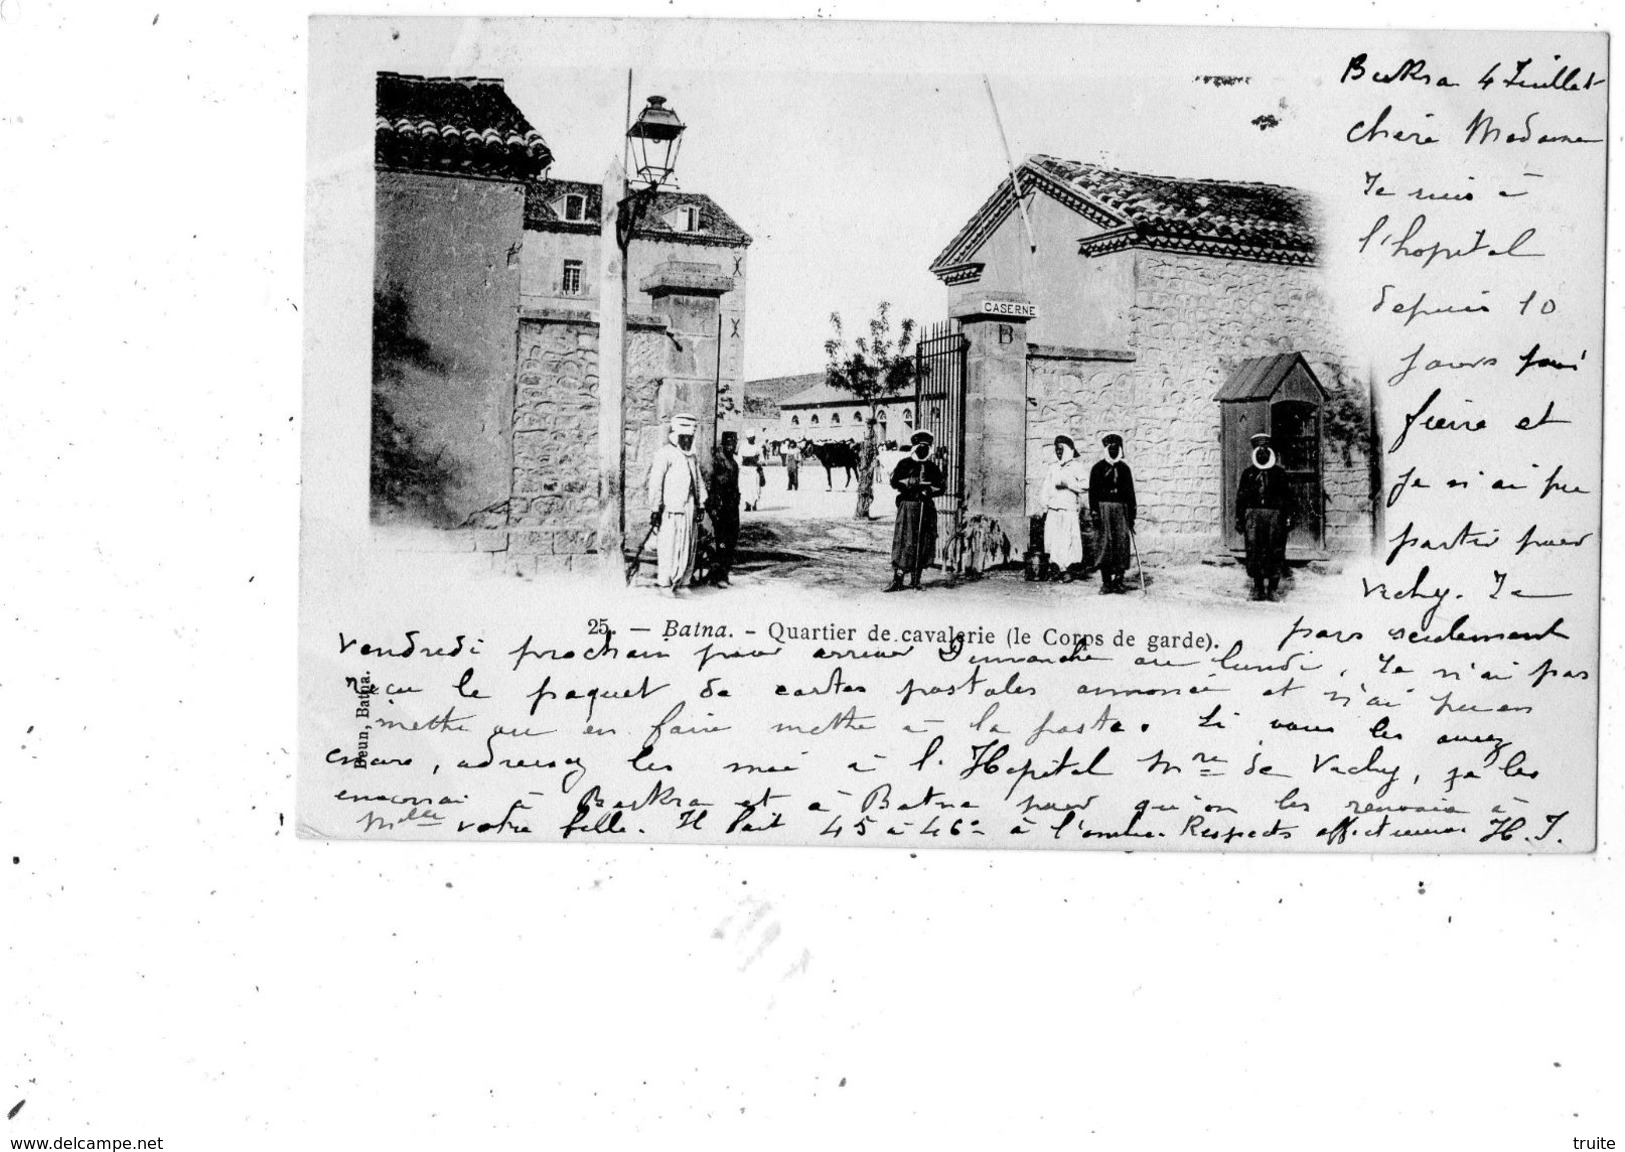 CASERNE
B
Biskra 4 Juillet
chère Madame
Je suis à
l'hopital
depuis 10
jours pour
fièvre et
je n'ai pu
partir pour
Vichy. Je
pars seulement
25. — Batna. - Quartier de cavalerie (le Corps de garde).
Vendredi prochain pour arriver Dimanche ou lundi. Je n'ai pas
reçu le paquet de cartes postales annoncé et n'ai pu en
mettre ou en faire mettre à la poste. Si vous les avez
encore, adressez les moi à l'Hopital Mre de Vichy, je les
enverrai à Biskra et à Batna pour qu'on les renvoie à
Melle votre fille. Il fait 45 à 46° à l'ombre. Respects affectueux H. J.
Beun, Batna.
www.delcampe.net
truite